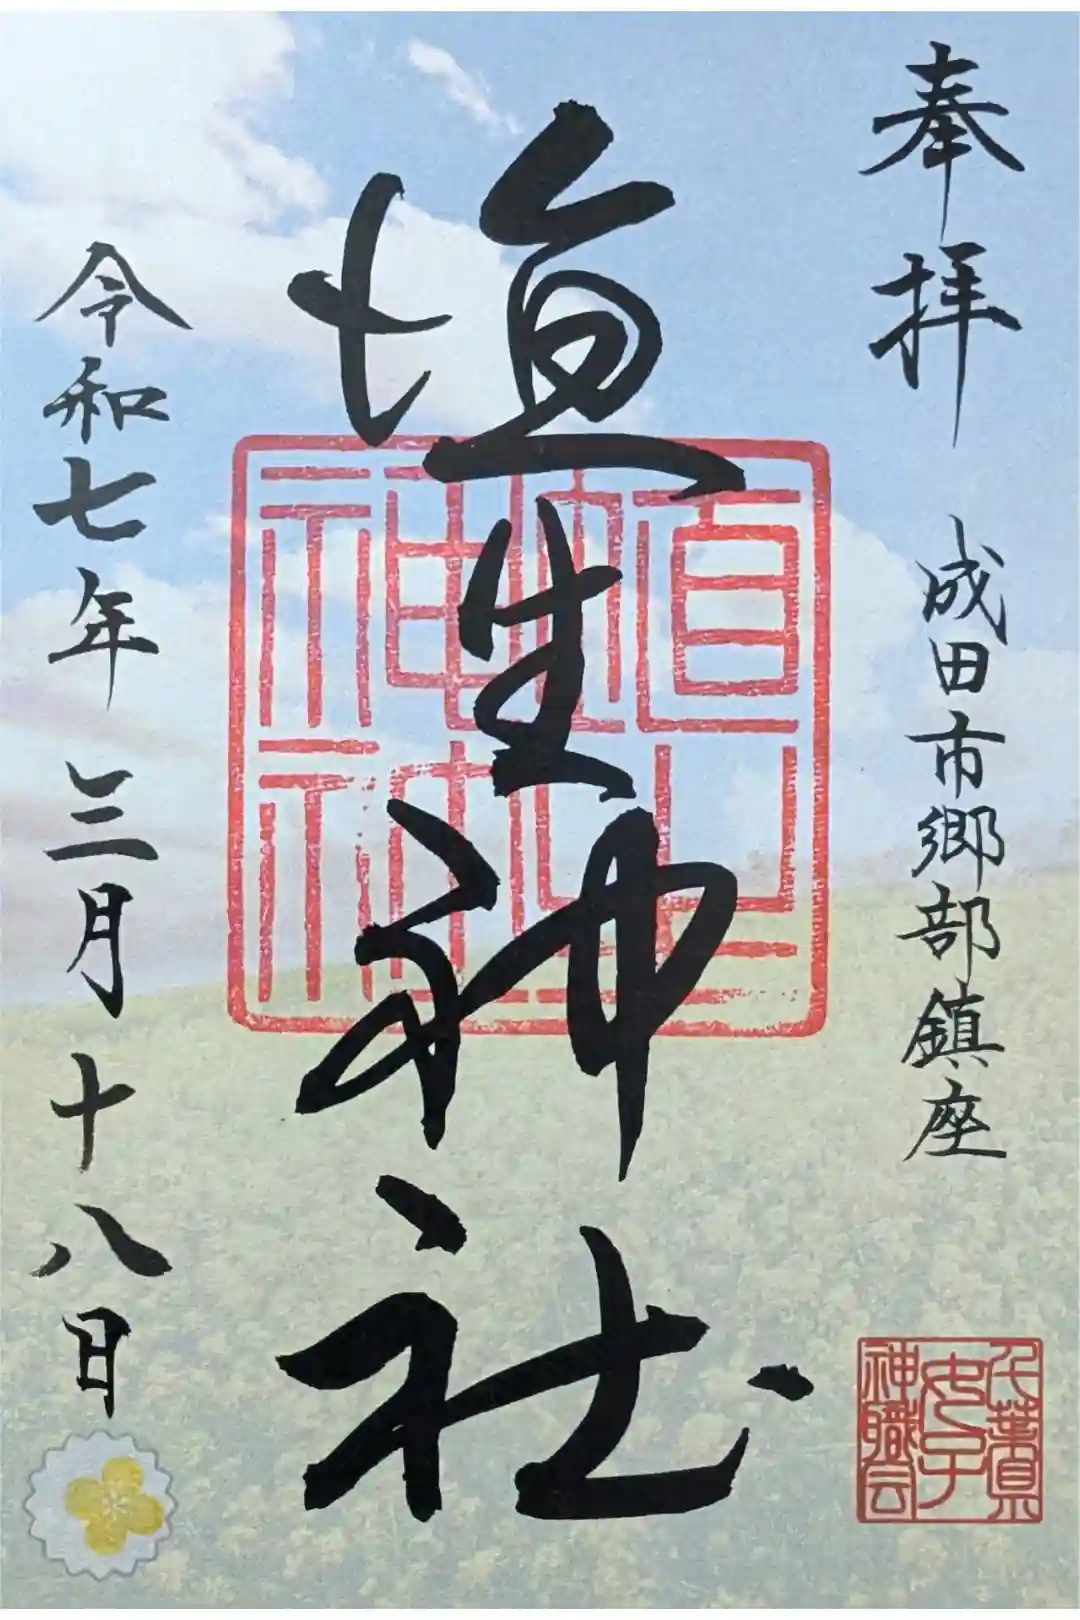 奉拝
成田市郷部鎮座
千葉県
女子
神職会
埴生神社
埴生
神社
令和七年三月十八日